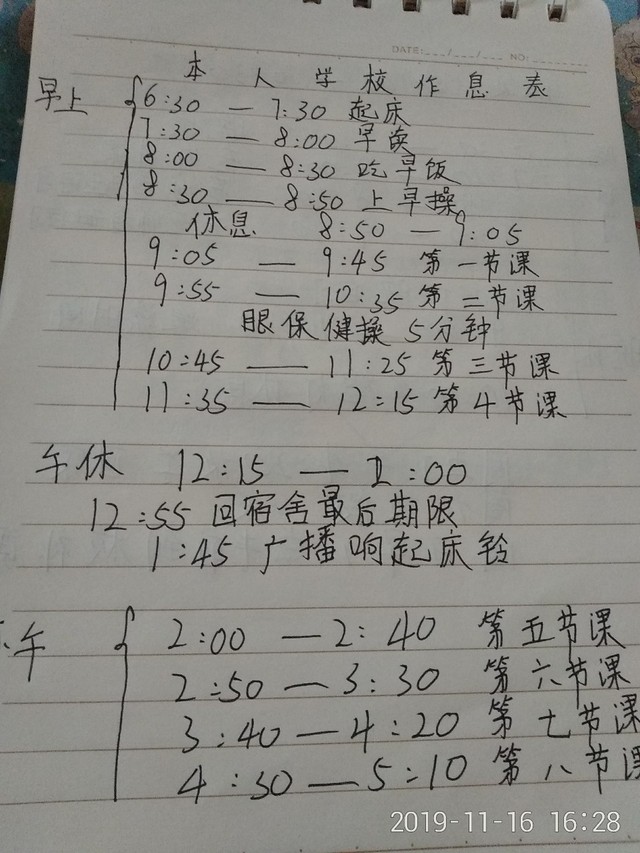 DATE:___/___/___ NO:______
本人学校作息表
早上 6:30 — 7:30 起床
7:30 — 8:00 早读
8:00 — 8:30 吃早饭
8:30 — 8:50 上早操
休息 8:50 — 9:05
9:05 — 9:45 第一节课
9:55 — 10:35 第二节课
眼保健操 5分钟
10:45 — 11:25 第三节课
11:35 — 12:15 第4节课
午休 12:15 — 2:00
12:55 回宿舍最后期限
1:45 广播响起床铃
午 2:00 — 2:40 第五节课
2:50 — 3:30 第六节课
3:40 — 4:20 第七节课
4:30 — 5:10 第八节课
2019-11-16 16:28